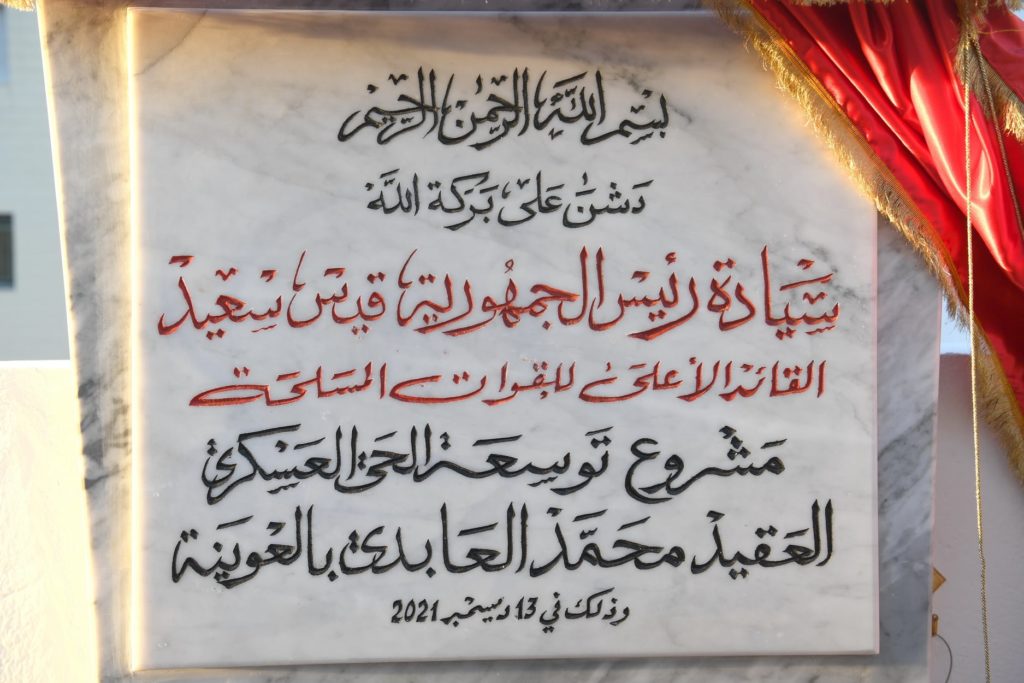 بسم الله الرحمن الرحيم
دشن على بركة الله
سيادة رئيس الجمهورية قيس سعيد
القائد الأعلى للقوات المسلحة
مشروع توسعة الحي العسكري
العقيد محمد العابدي بالعوينة
وذلك في 13 ديسمبر 2021